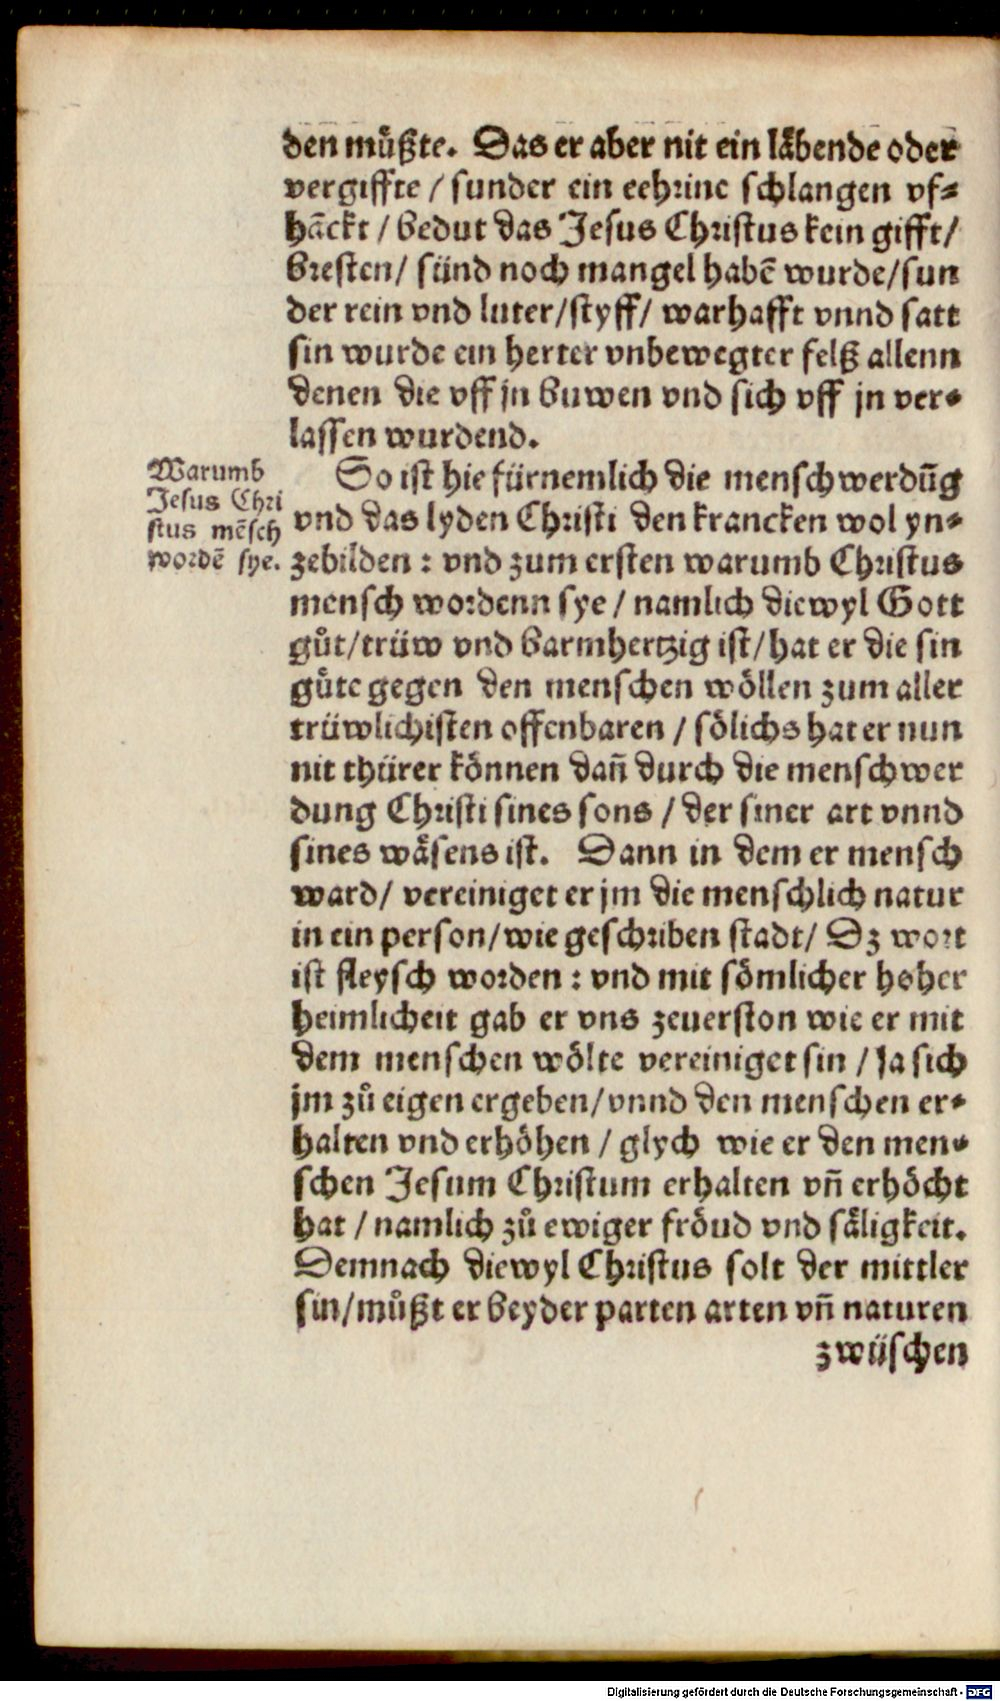 den müßte. Das er aber nit ein läbende oder
vergiffte / sunder ein eehrine schlangen vf=
hãckt / bedut das Jesus Christus kein gifft/
bresten/ sünd noch mangel habẽ wurde/sun
der rein vnd luter/styff/ warhafft vnnd satt
sin wurde ein herter vnbewegter felß allenn
denen die vff jn buwen vnd sich vff jn ver=
lassen wurdend.
Warumb
Jesus Chri
stus mẽsch
wordẽ sye.
So ist hie fürnemlich die menschwerdũg
vnd das lyden Christi den krancken wol yn=
zebilden : vnd zum ersten warumb Christus
mensch wordenn sye / namlich diewyl Gott
gůt/trüw vnd barmhertzig ist/hat er die sin
güte gegen den menschen wöllen zum aller
trüwlichisten offenbaren / sölichs hat er nun
nit thürer können dañ durch die menschwer
dung Christi sines sons / der siner art vnnd
sines wäsens ist. Dann in dem er mensch
ward/ vereiniget er jm die menschlich natur
in ein person/wie geschriben stadt/ Dz wort
ist fleysch worden : vnd mit sömlicher hoher
heimlicheit gab er vns zeuerston wie er mit
dem menschen wölte vereiniget sin / Ja sich
jm zů eigen ergeben/vnnd den menschen er=
halten vnd erhöhen / glych wie er den men=
schen Jesum Christum erhalten vñ erhöcht
hat / namlich zů ewiger fröud vnd säligkeit.
Demnach diewyl Christus solt der mittler
sin/müßt er beyder parten arten vñ naturen
zwüschen
Digitalisierung gefördert durch die Deutsche Forschungsgemeinschaft - DFG